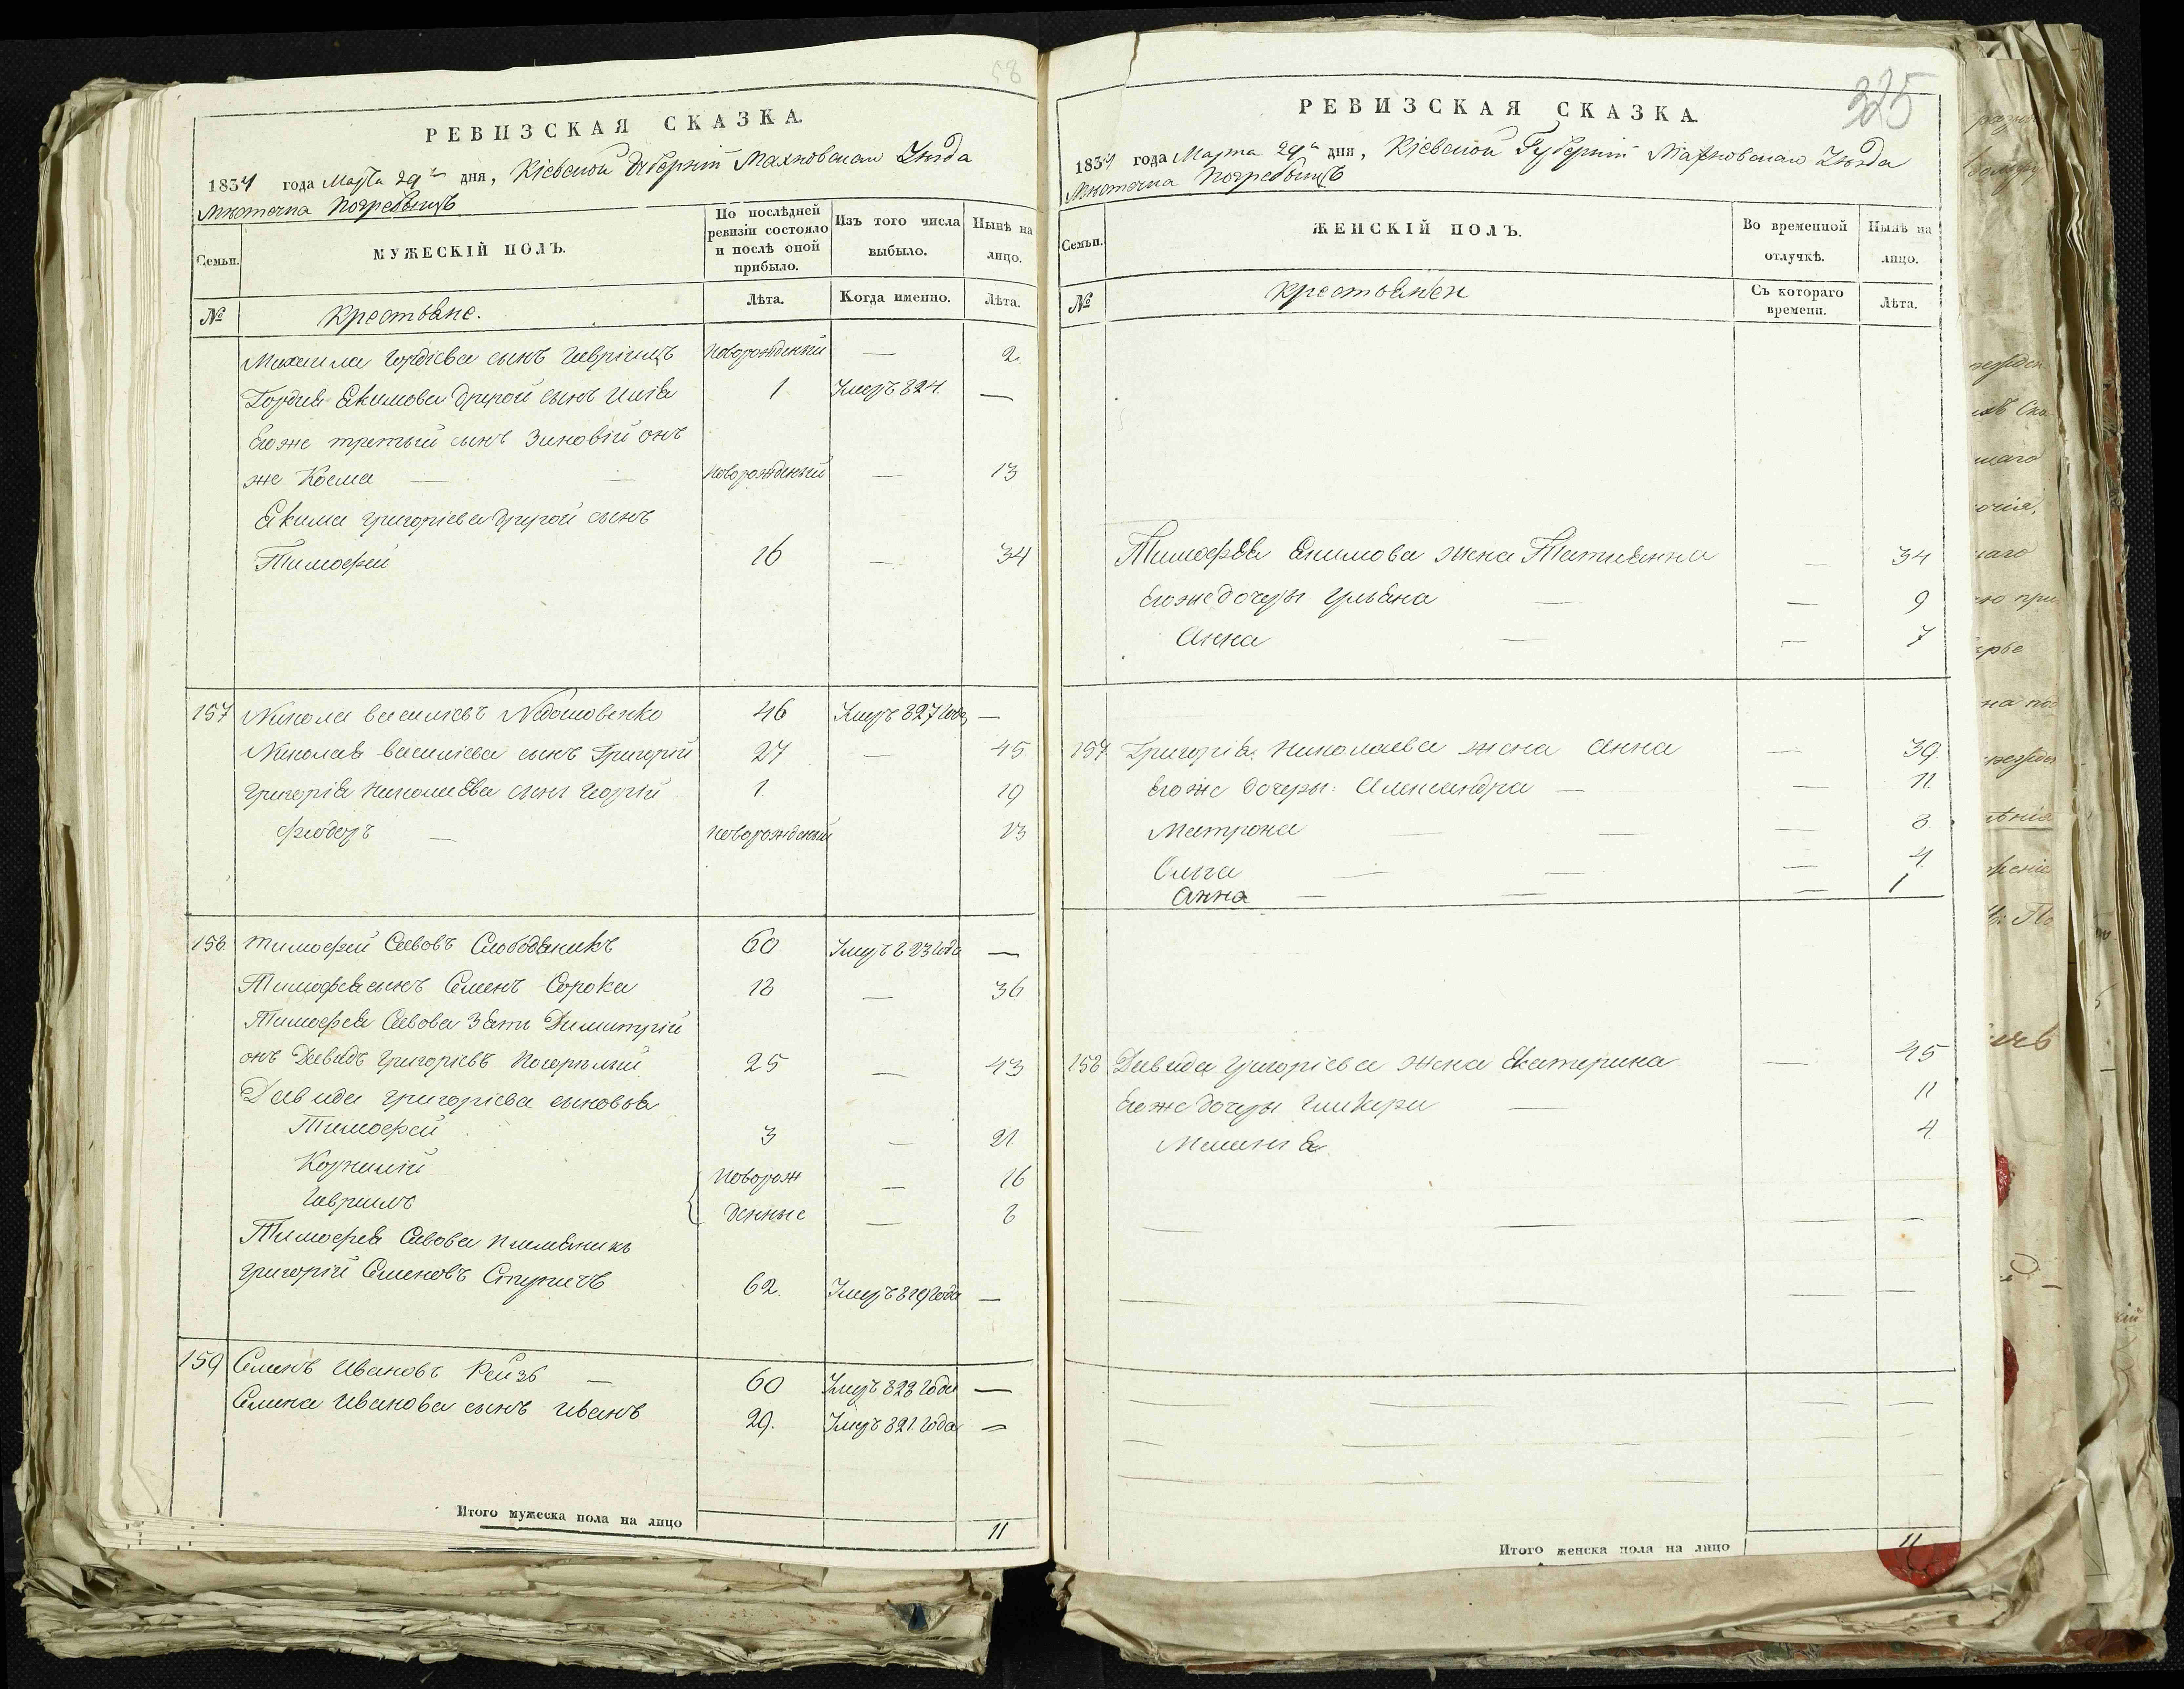 58
РЕВИЗСКАЯ СКАЗКА.
1834 года Марта 29 дня, Кіевской Губерніи Махновскаго Уѣзда
Мѣстечка Погребыщъ
Семьи.
МУЖЕСКІЙ ПОЛЪ.
По послѣдней ревизіи состояло и послѣ оной прибыло.
Изъ того числа выбыло.
Нынѣ на лицо.
№
Крестьяне.
Лѣта.
Когда именно.
Лѣта.
Михаила Гордіева сынъ новорожденный — 2.
Гордія Якимова другой сынъ Илія 1 Умеръ 824. —
Егоже третый сынъ Зиновій онъ
же Косма — — новорожденный — 13
Якима Григоріева другой сынъ
Тимофей 16 — 34
157 Никола Василіевъ 46 Умеръ 827 года —
Николая Василіева сынъ Григорій 27 — 45
Григорія Николаева сыны Георгій 1 19
Фіодоръ — новорожденый 13
158 Тимофей Савовъ Слободяникъ 60 Умеръ 823 года —
Тимофея сынъ Семенъ Сорока 18 — 36
Тимофея Савова Зять Димитрій
онъ Давидъ Григоріевъ Погорѣлый 25 — 43
Давида Григоріева сыновья
Тимофей 3 — 21
Корнилій новорож — 16
Гаврилъ денные — 8
Тимофея Савова племяникъ
Григорій Семеновъ 62. Умеръ 819 года —
159 Семенъ Ивановъ — 60 Умеръ 828 года —
Семена Иванова сынъ Иванъ 29. Умеръ 821. года —
Итого мужеска пола на лицо 11
325
РЕВИЗСКАЯ СКАЗКА.
1834 года Марта 29 дня, Кіевской Губерніи Махновскаго Уѣзда
Мѣстечка Погребыщъ
Семьи.
ЖЕНСКІЙ ПОЛЪ.
Во временной отлучкѣ.
Нынѣ на лицо.
№
Крестьянен
Съ котораго времени.
Лѣта.
Тимофѣя Екимова жена Татианна — 34
Егоже дочеры Ульяна — — 9
Анна — — 7
157 Григорія Николаева жена Анна — 39.
Егоже дочеры: Александра — — 11.
Матрона — — — 8.
Ольга — — — 4.
Анна — — — 1
158 Давида Григоріева жена Екатерина — 45
Егоже дочеры Гликера — 11
Меланія 4
Итого женска пола на лицо 11